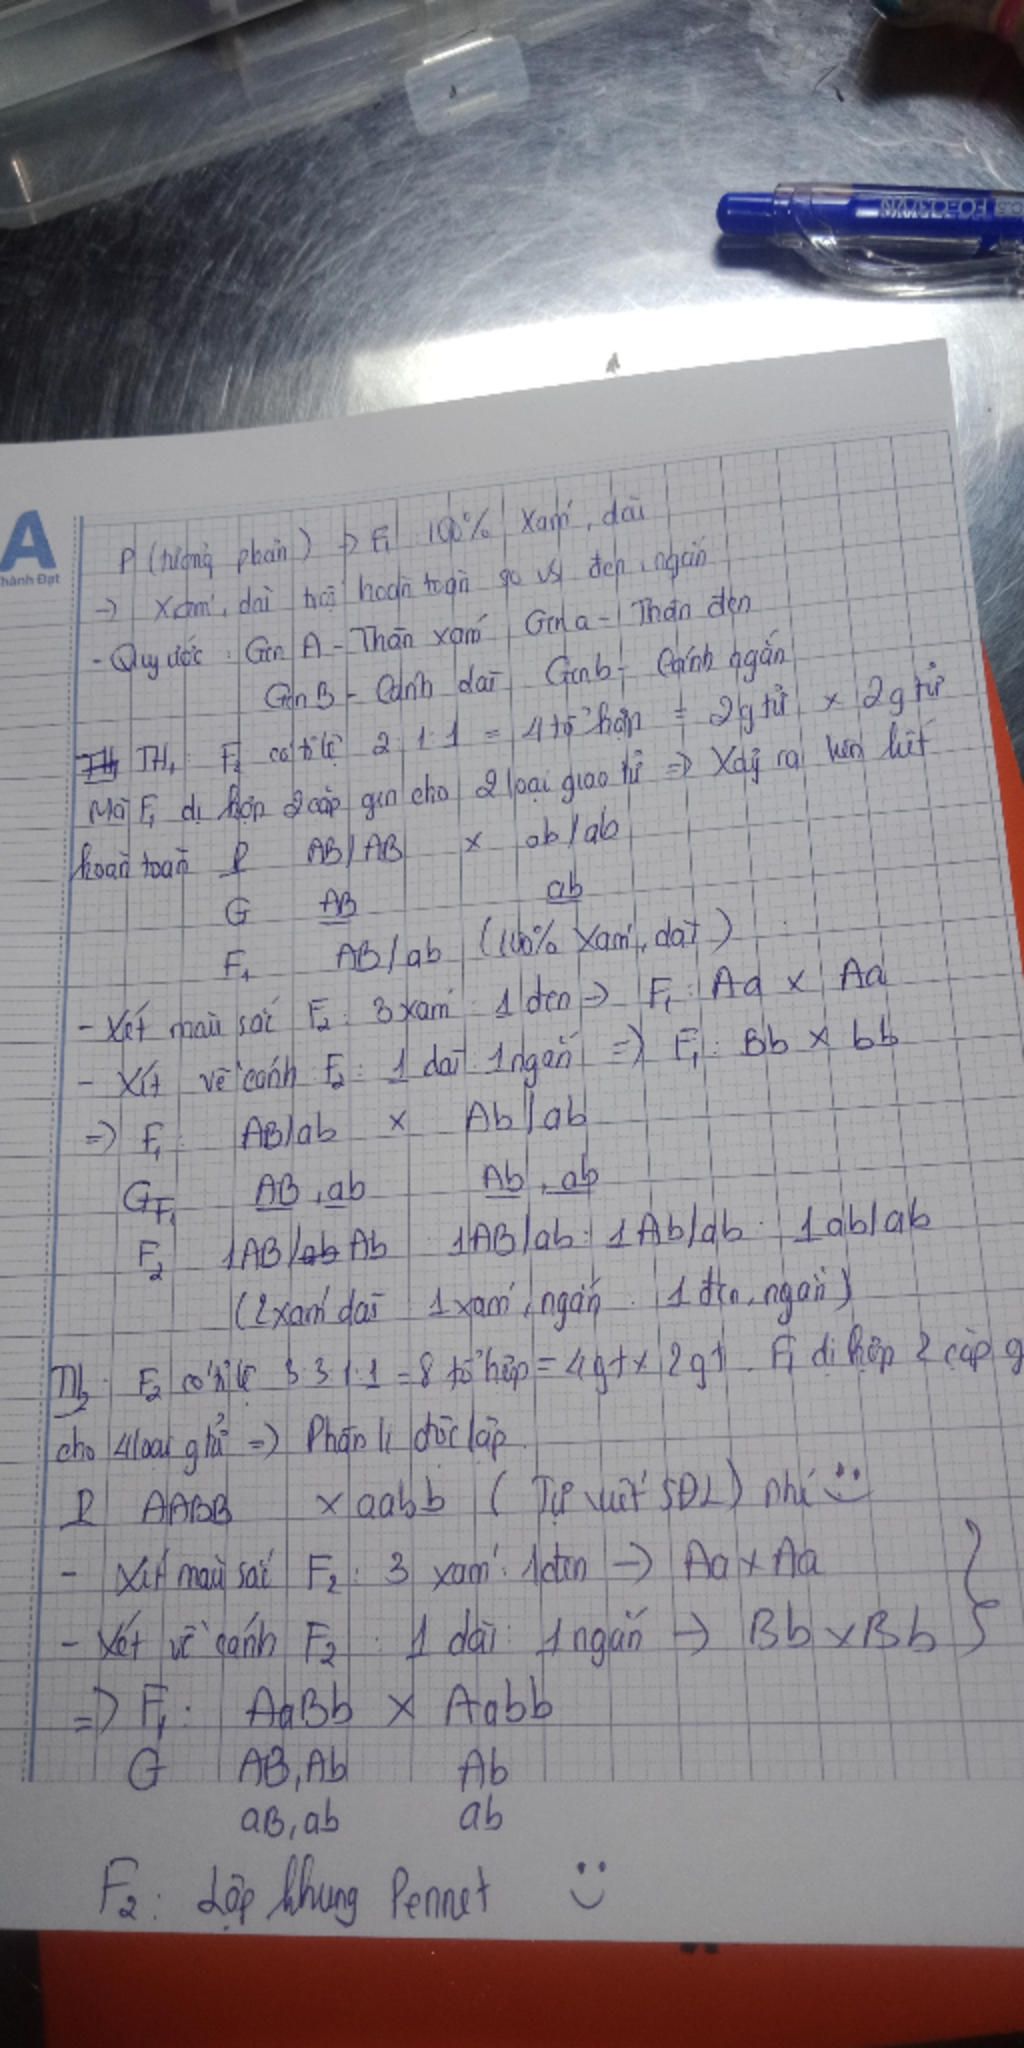 A
Thành Đạt
P (tương phản) => F1 100% Xám, dài
-> Xám, dài trội hoàn toàn so vs đen, ngắn
- Quy ước: Gen A - Thân xám Gen a - Thân đen
Gen B - Cánh dài Gen b - Cánh ngắn
TH1: F2 có tỉ lệ 2:1:1 = 4 tổ hợp = 2g tử x 2g tử
Mà F1 dị hợp 2 cặp gen cho 2 loại giao tử => Xảy ra liên kết
hoàn toàn P AB/AB x ab/ab
G AB ab
F1 AB/ab (100% Xám, dài)
- Xét màu sắc F2: 3 xám: 1 đen => F1: Aa x Aa
- Xét về cánh F2: 1 dài: 1 ngắn => F1: Bb x bb
=> F1: AB/ab x Ab/ab
GF1 AB, ab Ab, ab
F2 1AB/Ab 1AB/ab: 1Ab/ab: 1ab/ab
(2 xám dài 1 xám, ngắn: 1 đen, ngắn)
TH2: F2 có tỉ lệ 3:3:1:1 = 8 tổ hợp = 4gt x 2gt. F1 dị hợp 2 cặp g
cho 4 loại g tử => Phân li độc lập
P AABB x aabb (Tự viết SĐL) nhé
- Xét màu sắc F2: 3 xám: 1 đen -> Aa x Aa
- Xét về cánh F2: 1 dài: 1 ngắn -> Bb x Bb
=> F1: AaBb x Aabb
G AB, Ab Ab
aB, ab ab
F2: Lập khung Pennet